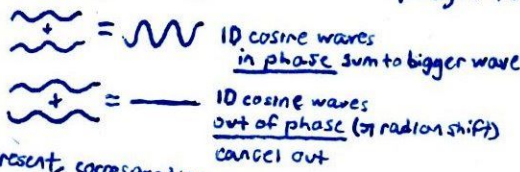 + = 1D cosine waves
in phase sum to bigger wave
+ = 1D cosine waves
out of phase (π radian shift)
cancel out